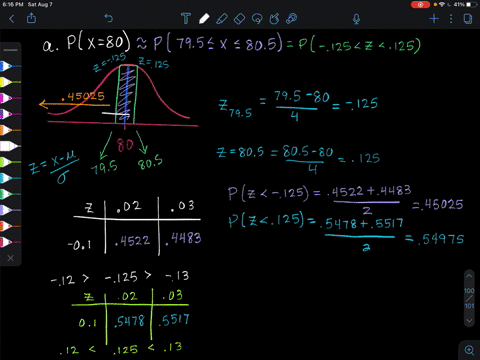 6:16 PM Sat Aug 7
41%
a. P(X=80) ≈ P(79.5 ≤ X ≤ 80.5) = P(-.125 < Z < .125)
Z=-.125
Z=.125
.45025
80
79.5
80.5
Z = X-μ / σ
Z79.5 = 79.5-80 / 4 = -.125
Z=80.5 = 80.5-80 / 4 = .125
P(Z < -.125) = .4522+.4483 / 2 = .45025
P(Z < .125) = .5478+.5517 / 2 = .54975
Z .02 .03
-0.1 .4522 .4483
-.12 > -.125 > -.13
Z .02 .03
0.1 .5478 .5517
.12 < .125 < .13
100
101